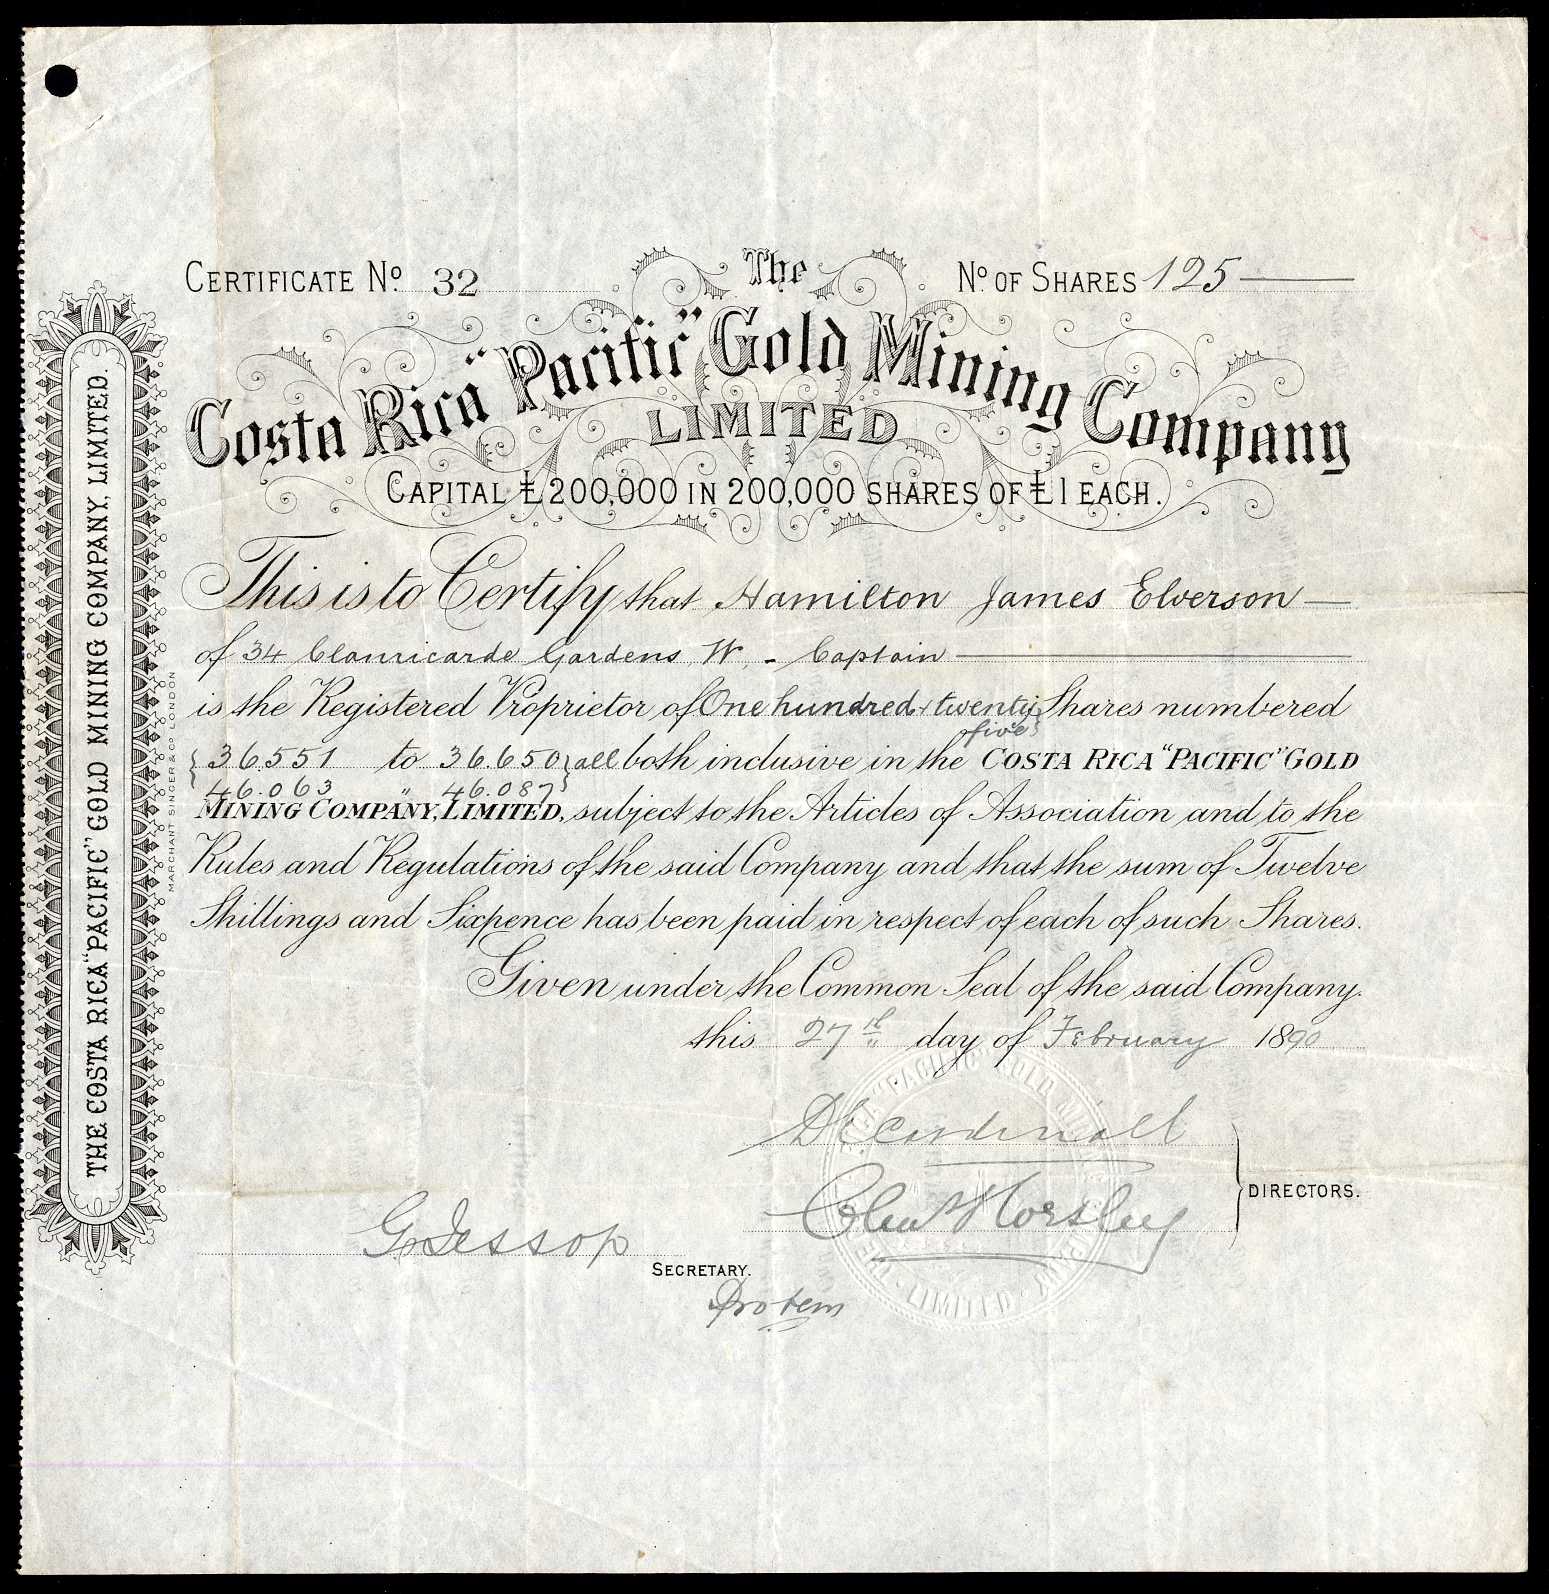 CERTIFICATE No. 32
No. OF SHARES 125
The
Costa Rica "Pacific" Gold Mining Company
LIMITED
CAPITAL £200,000 IN 200,000 SHARES OF £1 EACH.
This is to Certify that Hamilton James Elverson
of 34 Clanricarde Gardens W, - Captain
is the Registered Proprietor of One hundred & twenty five Shares numbered
36.551 to 36.650 all both inclusive in the COSTA RICA "PACIFIC" GOLD
46.063 " 46.087
MINING COMPANY, LIMITED, subject to the Articles of Association and to the
Rules and Regulations of the said Company and that the sum of Twelve
Shillings and Sixpence has been paid in respect of each of such Shares.
Given under the Common Seal of the said Company.
this 27th day of February 1890
Cardinall
Horsley
DIRECTORS.
G. Jessop
SECRETARY.
Protem
THE COSTA RICA "PACIFIC" GOLD MINING COMPANY, LIMITED.
MARCHANT SINGER & Co LONDON
THE COSTA RICA "PACIFIC" GOLD MINING COMPANY · LIMITED ·